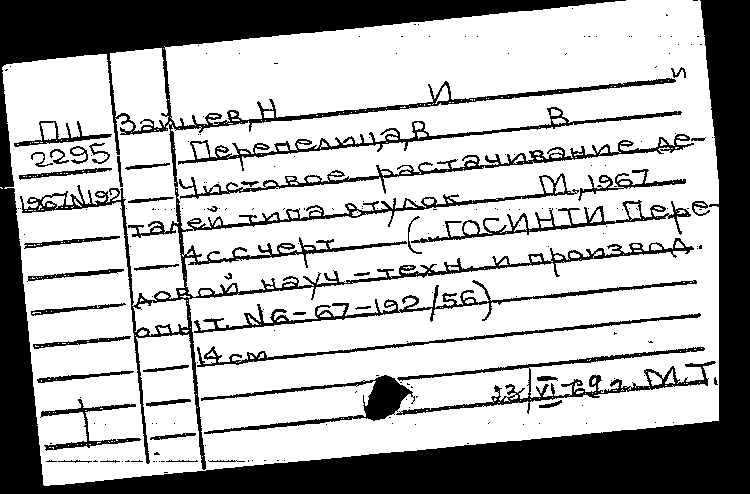 Зайцев, Н И и
П11 Перепелица, В В
2295 Чистовое растачивание де-
1967N192 талей типа втулок М., 1967
4с с черт (ГОСИНТИ Пере-
довой науч-техн. и производ.
опыт. N6-67-192/56)
14 см
23/VI-69 г. М.Т.